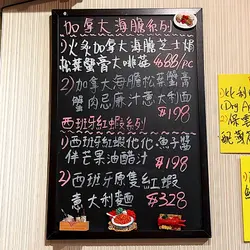 加拿大海膽系列
1)火炙加拿大海膽芝士焗
松葉蟹膏大啡菇 $68/PC
2)加拿大海膽松葉蟹膏
蟹肉忌廉汁意大利面
$198
西班牙紅蝦系列
1)西班牙紅蝦他他魚子醬
伴芒果油醋汁 $198
2)西班牙原隻紅蝦
意大利麵 $328